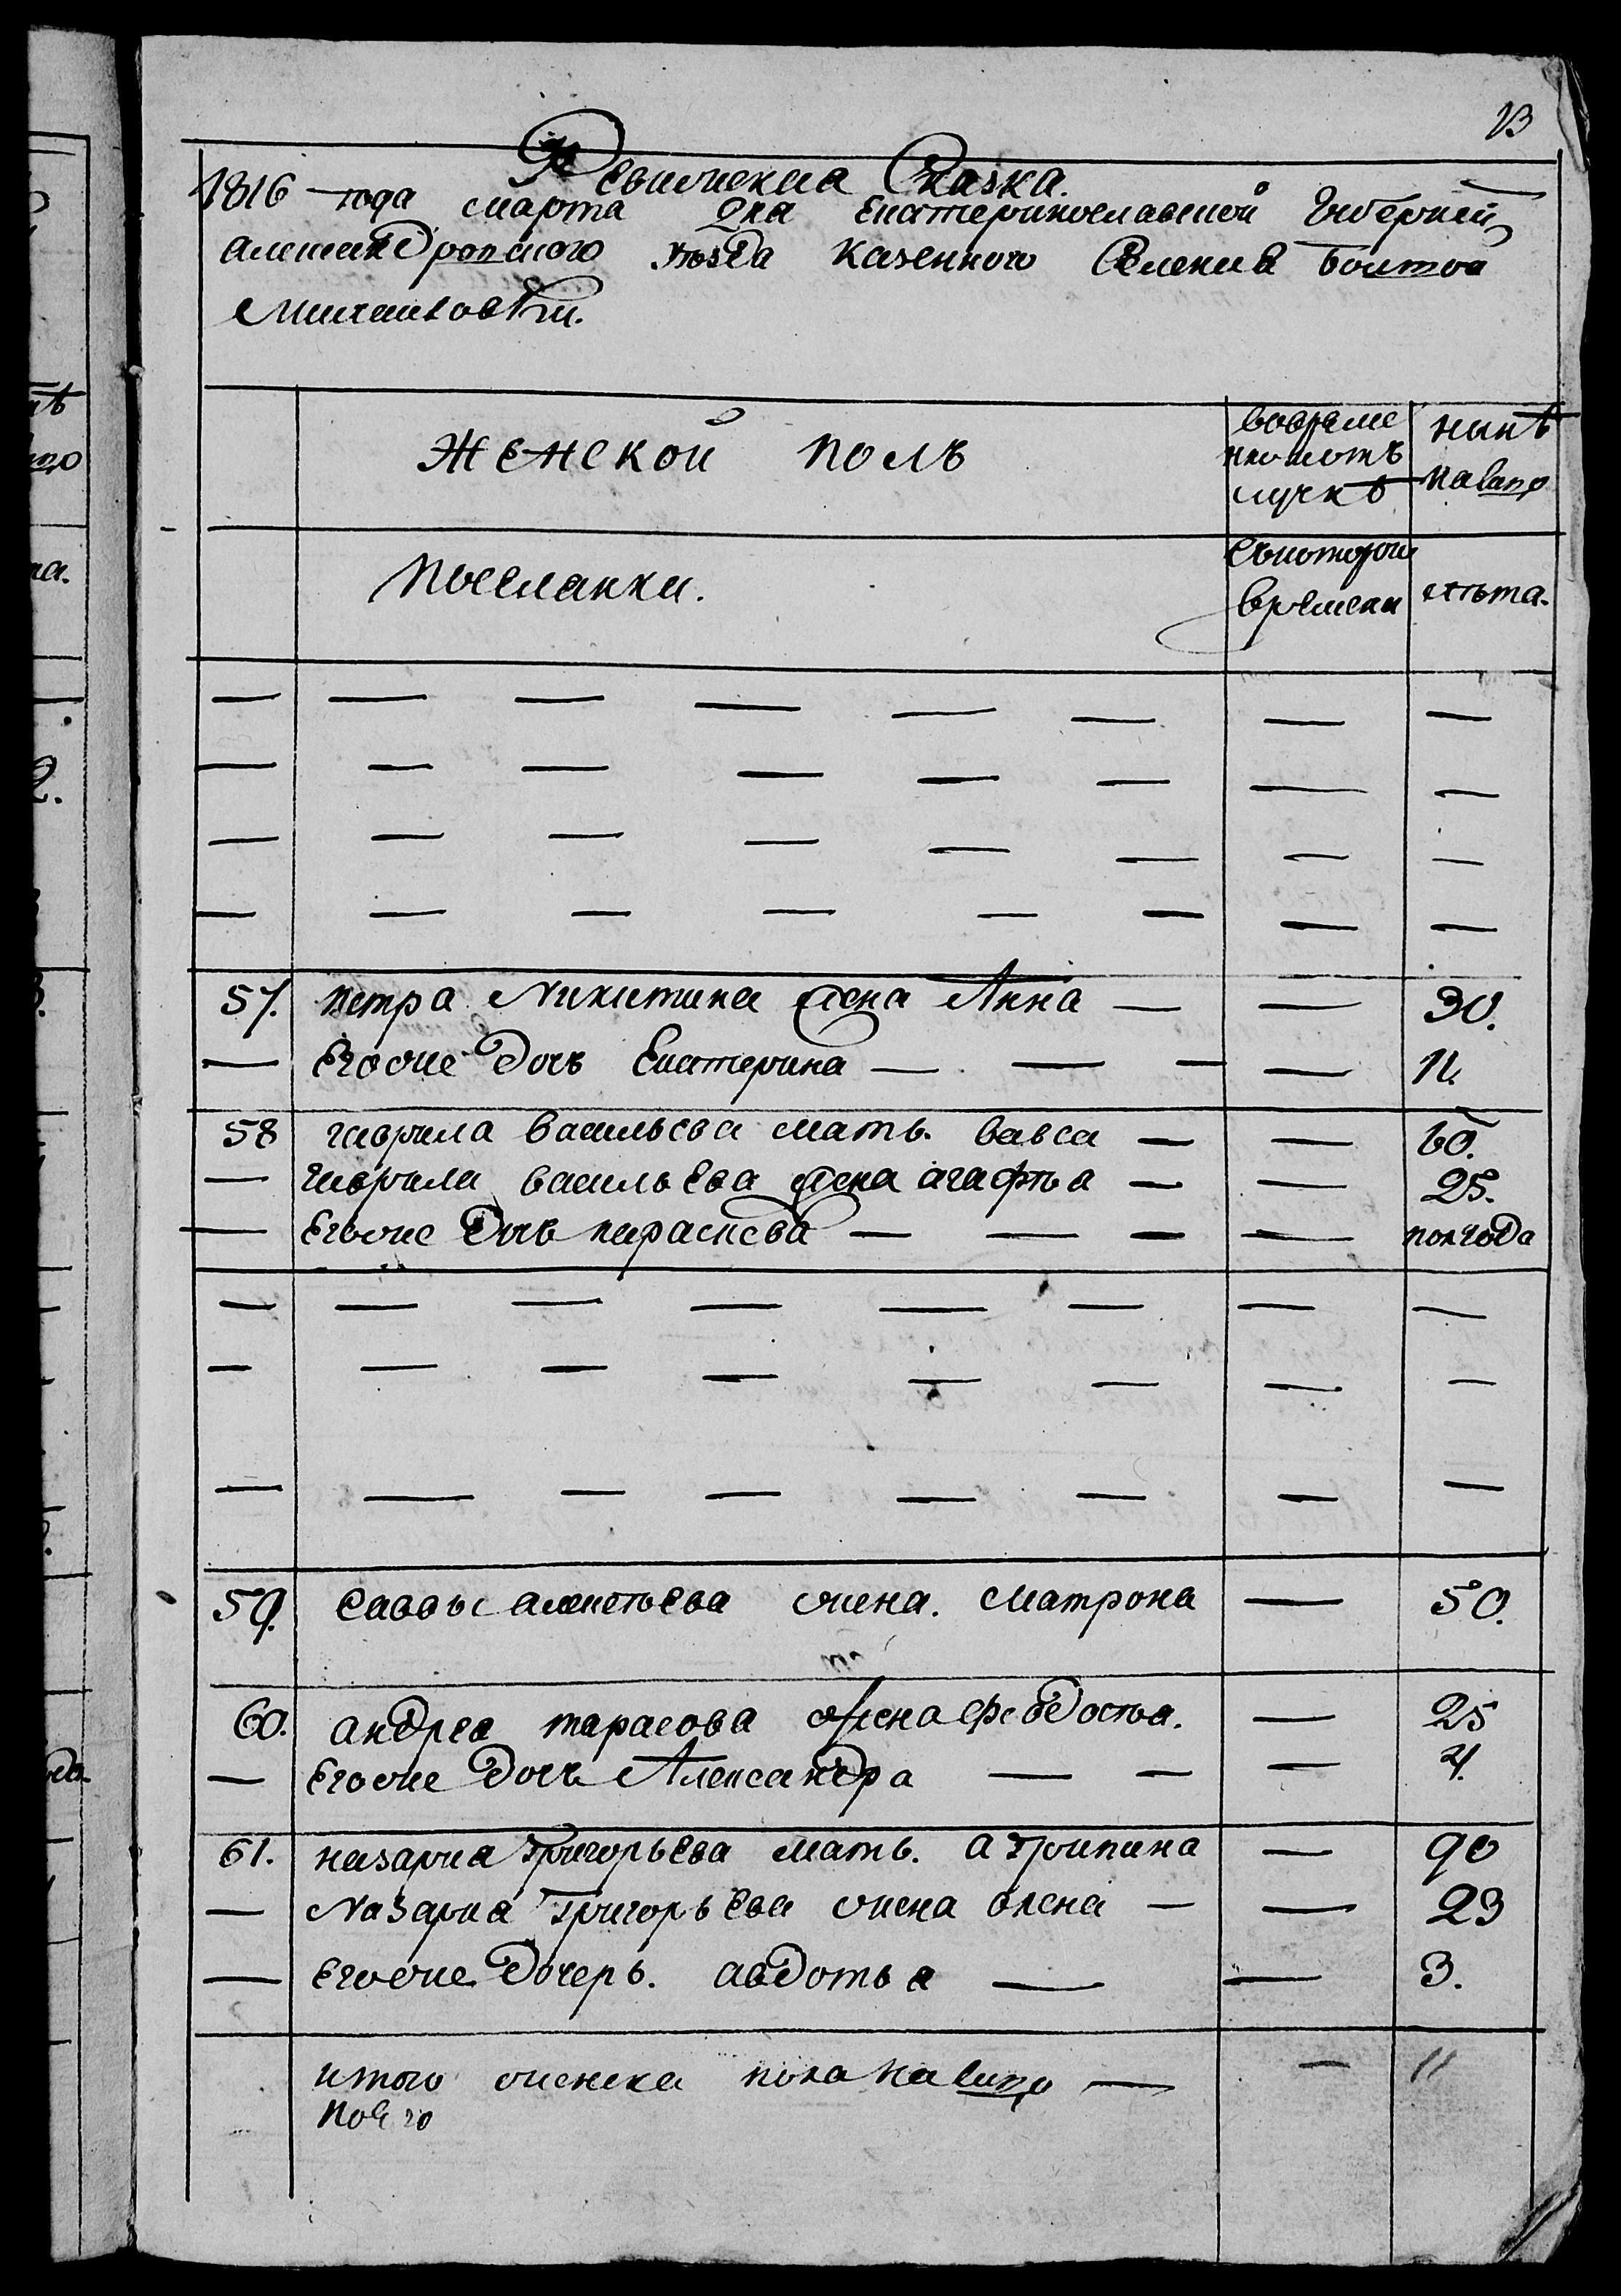 13
Ревижская Сказка.
1816 года марта дня Екатеринославской Губерний
Александровского уѣзда казенного Селения Болтой
Михайловки.
Женской полъ
вовреме
нно отъ
лучкѣ
нынѣ
налицо
Поселянки.
скотораго
времени
лѣта.
57. петра Никитина жена Анна — — 30.
— Егоже дочь Екатерина — — — — 11.
58 гаврила васильева мать. васса — — 60.
— гаврила васильева жена агафья — — 25.
— Егоже дочь параскева — — — — полгода
59. саввы алексѣева жена. Матрона — 50.
60. андрея тарасова жена феодосья. — 25
— Егоже дочь Александра — — — 4.
61. назария григорьева мать. агрипина — 90
— Назария григорьева жена олена — — 23
— Егоже дочерь. авдотья — — 3.
итого женска пола налицо — — 11